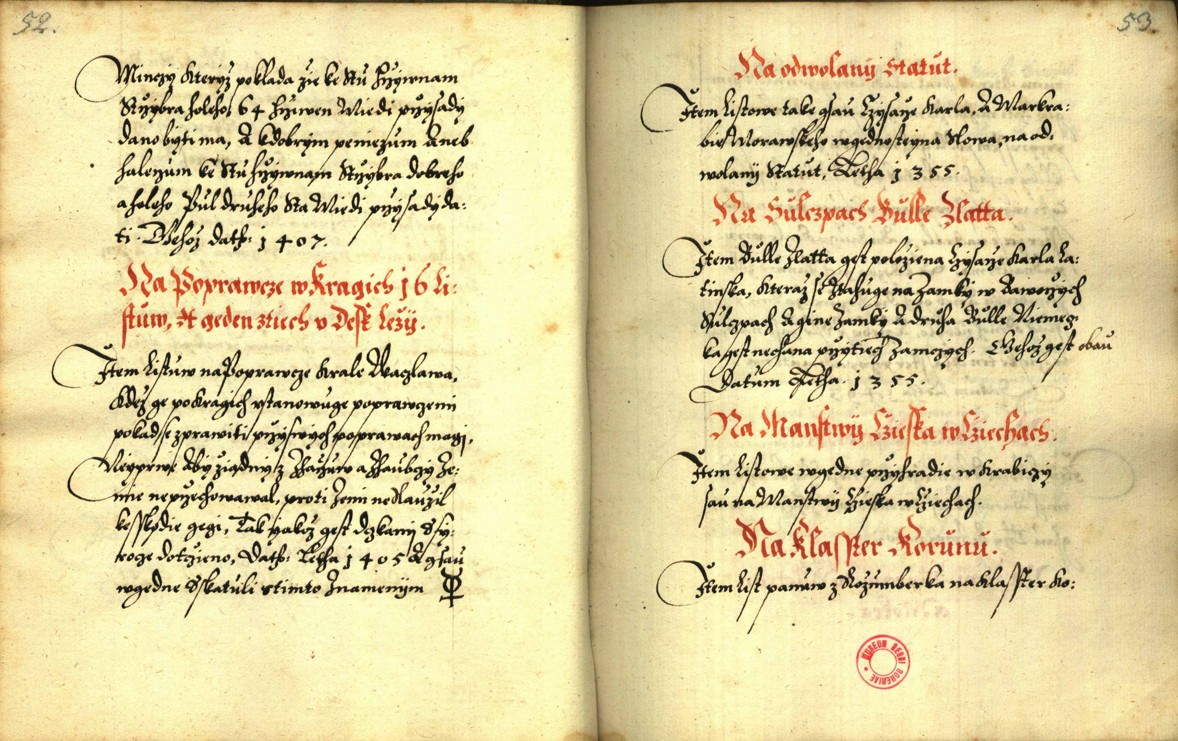 52.
Minczy kteryż poklada sie ke stu hrziwnam
Strzybra holeho, 64 hrziwen Miedi przysady
dano byti ma, A kdobrym peniezum Aneb
halerzum ke stu hrziwnam Strzybra dobreho
a holeho Pul druheho sta Miedi przysady da:
ti. Gehož dath: 1407.
Na Poprawcze w Kragich 16 Li:
stuw, A geden ztiech v Desk Leży.
Item Listuw na Poprawcze Krale Waczlawa,
kdež ge po Kragich vstanowuge poprawczemi
pokad se zprawiti przi swych poprawach magi,
Neyprwe Aby ziadny z a Ze:
mie neprzechowawal, proti Zemi neslaužil
ke sskodie gegi, Tak yakož gest
dotczieno, Dath: Letha 1405 A gsau
w gedne Sskatuli s timto Znamenym
53.
Na odwolany Statut.
Item Listowe take gsau Czysarze Karla, A Markra:
bie Morawskeho w gednosteyna Slowa, na od:
wolany Statut, Letha 1355.
Na Sulczpach Bulle Zlatta.
Item Bulle Zlatta gest položiena Czysarze Karla La:
tinska, kteraz se Ztahuge na Zamky w Baworzych
Sulczpach A gine Zamky A druha Bulle Niemcz:
ka gest nechana przy tiech Zamczych. Gehož gest obau
Datum Letha. 1355.
Na Manstwy Czieska w Cziechach.
Item Listowe w gedne przyhradie w Krabiczy
sau na Manstwy Czieska w Cziechach.
Na Klasster Korunu.
Item List panuw z Rozumberka na Klasster Ko:
MUSEUM REGNI BOHEMIAE